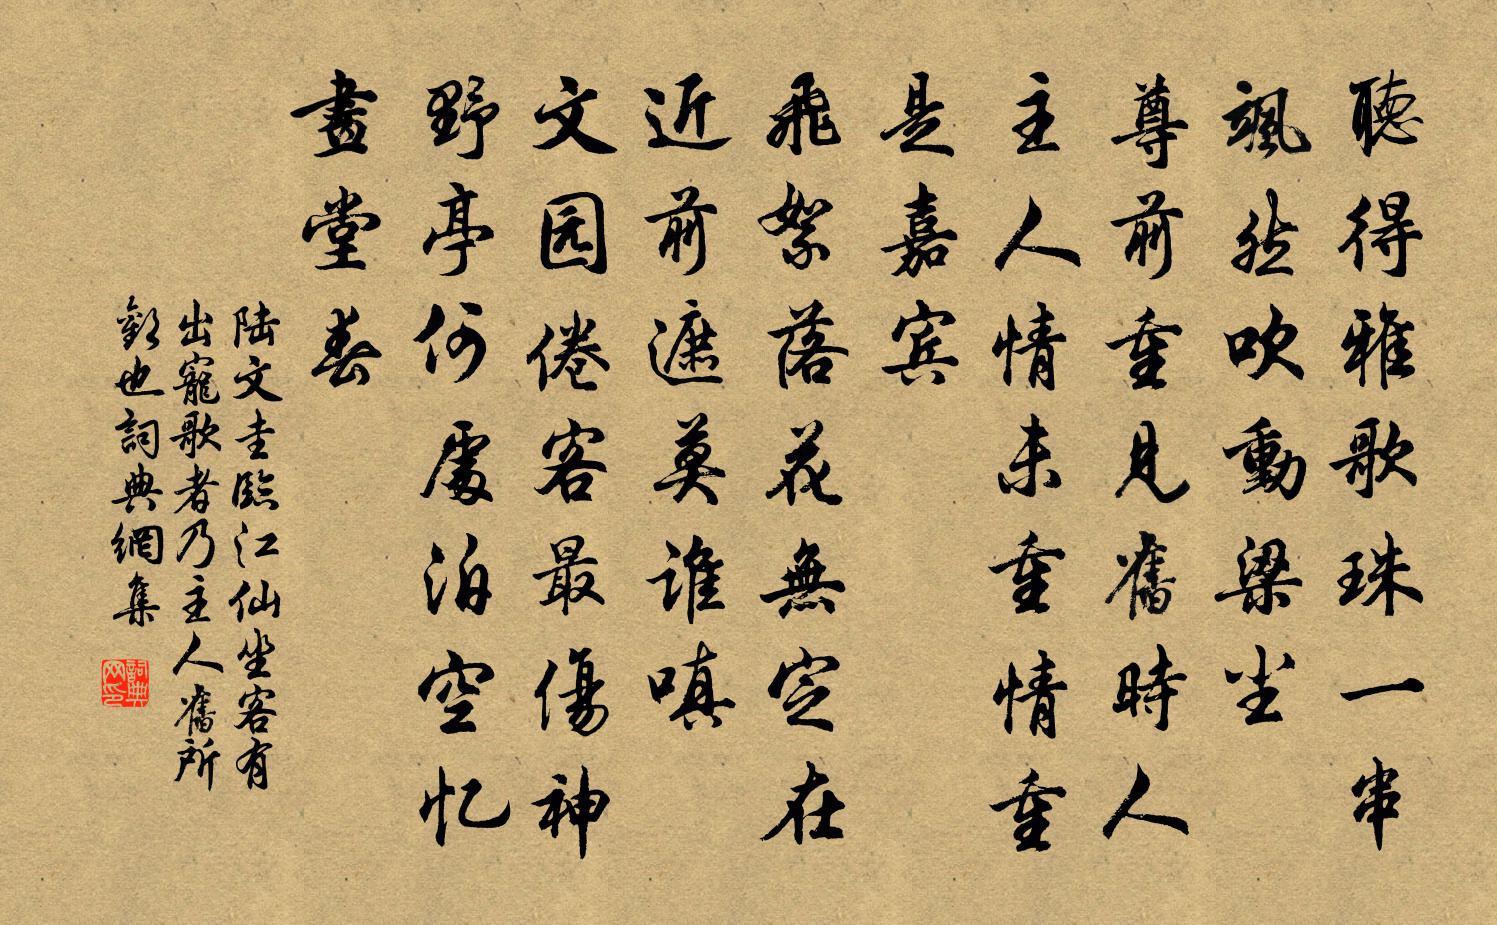 聽得雅歌珠一串
颯然吹動梁尘
尊前重見舊時人
主人情未重情重
是嘉宾
飛絮落花無定在
近前遮莫谁嗔
文园倦客最傷神
野亭何處泊空忆
畫堂春
陆文圭臨江仙坐客有
出寵歌者乃主人舊所
歡也詞典網集
詞典网印